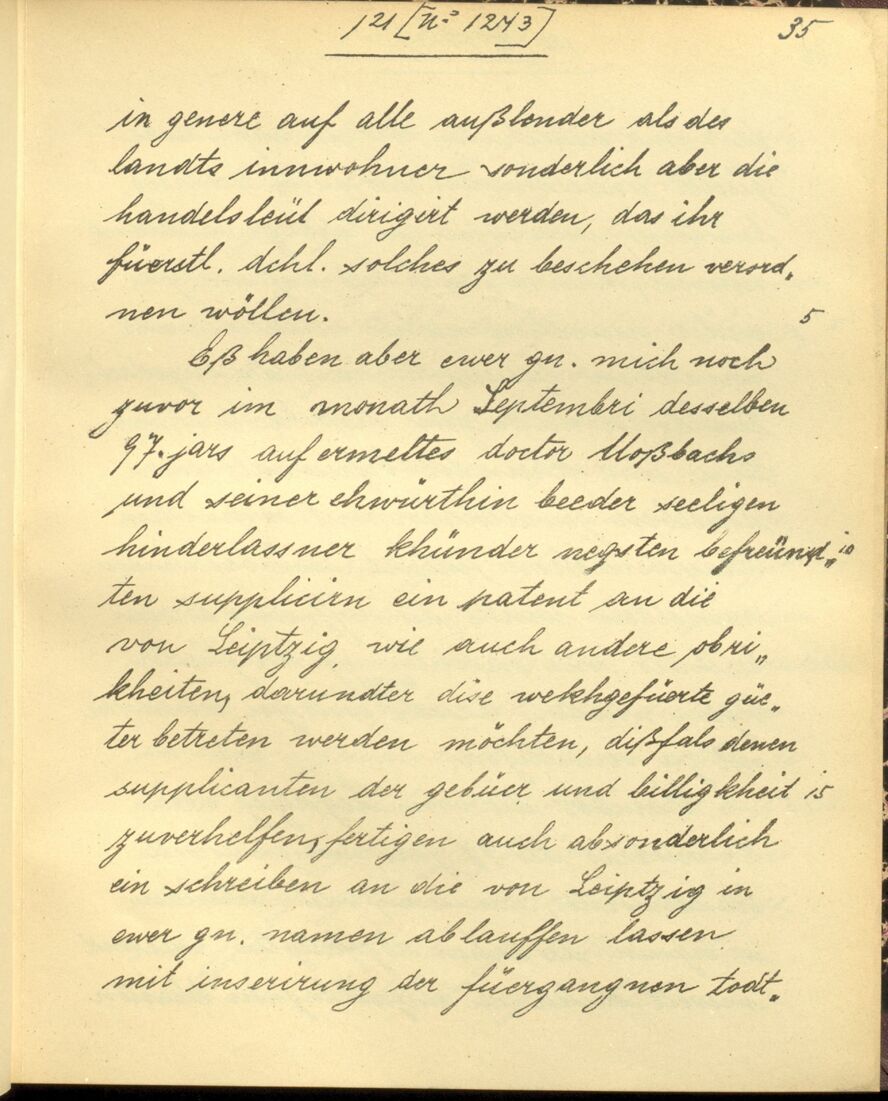 121 [N⁰ 1243]
35
in genere auf alle außlender als des
landts innwohner sonderlich aber die
handelsleüt dirigirt werden, das ihr
füerstl. dchl. solches zu beschehen verord„
nen wöllen.
5
Eß haben aber ewer gn. mich noch
zuvor im monath Septembri desselben
97. jars auf ermeltes doctor Moßbachs
und seiner ehwürthin beeder seeligen
hinderlassner khünder negsten befreünd„
10
ten supplicirn ein patent an die
von Leiptzig wie auch andere obri„
kheiten, darundter dise wekhgefüerte güe„
ter betreten werden möchten, dißfals denen
supplicanten der gebüer und billigkheit
15
zuverhelfen, fertigen auch absonderlich
ein schreiben an die von Leiptzig in
ewer gn. namen ablauffen lassen
mit inserirung der füergangnen todt„